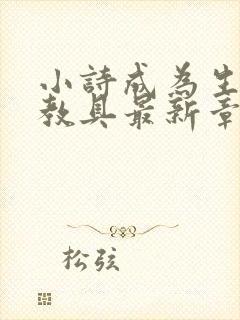 小詩成為生
教具最新章
松弦